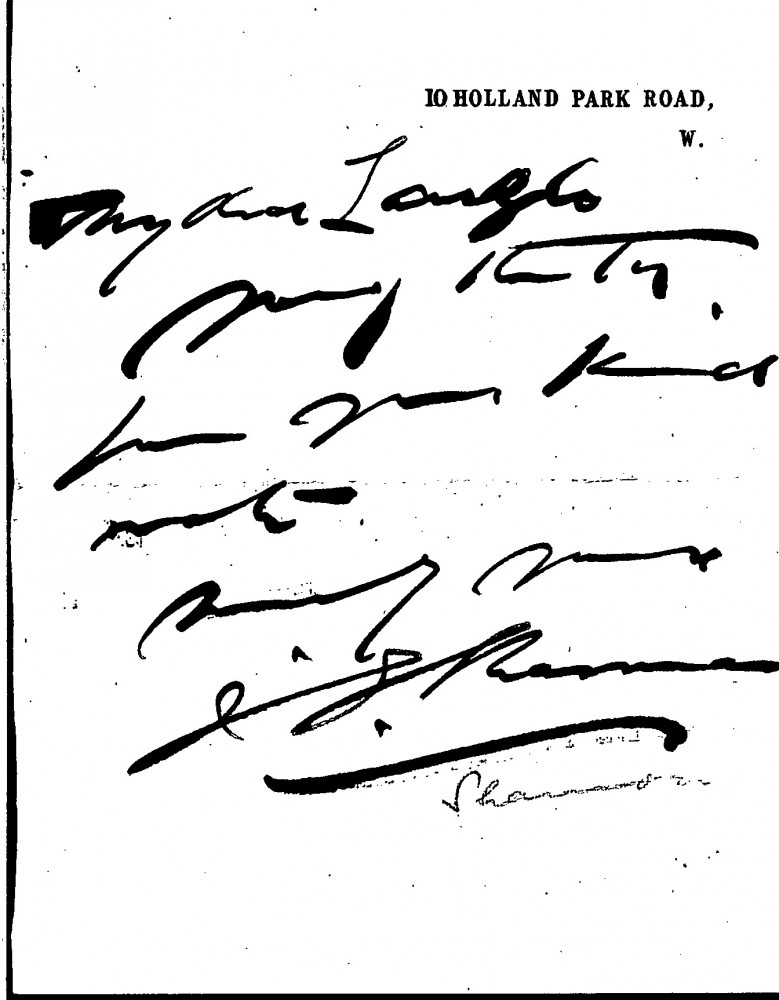 10 HOLLAND PARK ROAD,
W.
My dear
Many thanks
for your kind
note
Sincerely yours
J. J. Shannon
Shannon